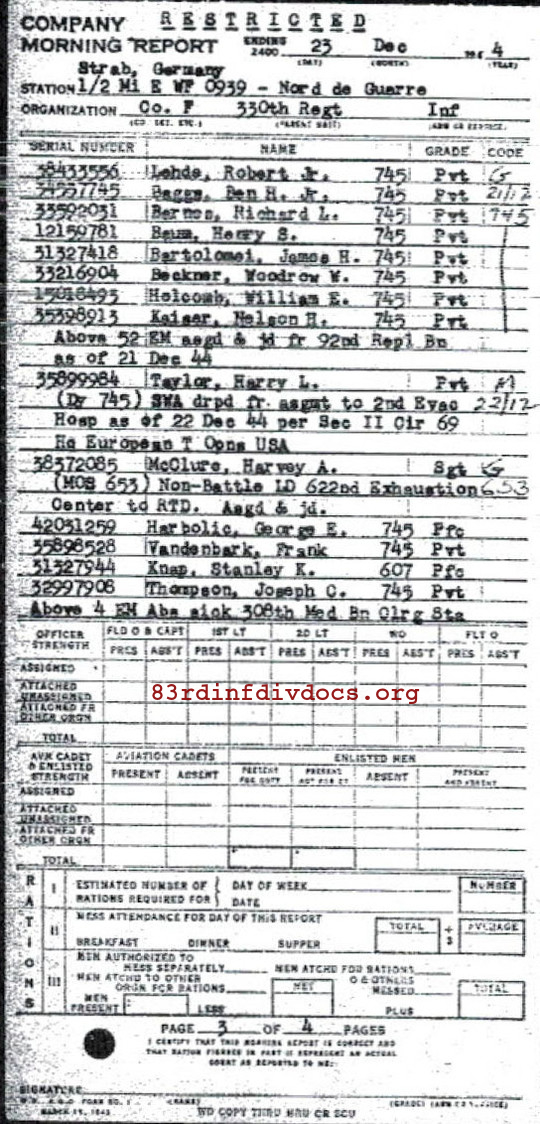 RESTRICTED
COMPANY
MORNING REPORT ENDING 2400 23 Dec 4
(DAY) (MONTH) (YEAR)
Strab, Germany
STATION 1/2 Mi E WF 0939 - Nord de Guerre
ORGANIZATION Co. F 330th Regt Inf
SERIAL NUMBER NAME GRADE CODE
38433556 Lehde, Robert Jr. 745 Pvt G
34557745 Beggs, Ben H. Jr. 745 Pvt 21/12
33592031 Bernos, Richard L. 745 Pvt 745
12159781 Baum, Henry S. 745 Pvt
31327418 Bartolomei, James H. 745 Pvt
33216904 Beckner, Woodrow W. 745 Pvt
15018495 Holcomb, William E. 745 Pvt
35398913 Kaiser, Nelson H. 745 Pvt
Above 52 EM asgd & jd fr 92nd Repl Bn
as of 21 Dec 44
35899984 Taylor, Harry L. Pvt
(Dy 745) SWA drpd fr. asgmt to 2nd Evac 22/12
Hosp as of 22 Dec 44 per Sec II Cir 69
Hq European T Opns USA
38372085 McClure, Harvey A. Sgt G
(MOS 653) Non-Battle LD 622nd Exhaustion 653
Center to RTD. Asgd & jd.
42031259 Harbolic, George E. 745 Pfc
35898528 Vandenbark, Frank 745 Pvt
31327944 Knap, Stanley K. 607 Pfc
32997908 Thompson, Joseph C. 745 Pvt
Above 4 EM Abs sick 308th Med Bn Clrg Sta
OFFICER STRENGTH FLD O & CAPT 1ST LT 2D LT WO FLT O
PRES ABS'T PRES ABS'T PRES ABS'T PRES ABS'T PRES ABS'T
ASSIGNED
ATTACHED UNASSIGNED
83rdinfdivdocs.org
ATTACHED FR OTHER ORGN
TOTAL
AVN CADET & ENLISTED STRENGTH AVIATION CADETS ENLISTED MEN
PRESENT ABSENT PRESENT FOR DUTY PRESENT NOT FOR DY ABSENT PRESENT AND ABSENT
ASSIGNED
ATTACHED UNASSIGNED
ATTACHED FR OTHER ORGN
TOTAL
RATIONS
I ESTIMATED NUMBER OF RATIONS REQUIRED FOR DAY OF WEEK DATE NUMBER
II MESS ATTENDANCE FOR DAY OF THIS REPORT TOTAL ÷ 3 AVERAGE
BREAKFAST DINNER SUPPER
III MEN AUTHORIZED TO MESS SEPARATELY MEN ATCHD FOR RATIONS
MEN ATCHD TO OTHER ORGN FOR RATIONS NET O & OTHERS MESSED TOTAL
MEN PRESENT LESS PLUS
PAGE 3 OF 4 PAGES
I CERTIFY THAT THIS MORNING REPORT IS CORRECT AND
THAT RATION FIGURES IN PART II REPRESENT AN ACTUAL
COUNT AS REPORTED TO ME:
SIGNATURE
FORM NO. 1 (NAME) (GRADE)
MARCH 15, 1943 WD COPY THRU MRU OR SCU